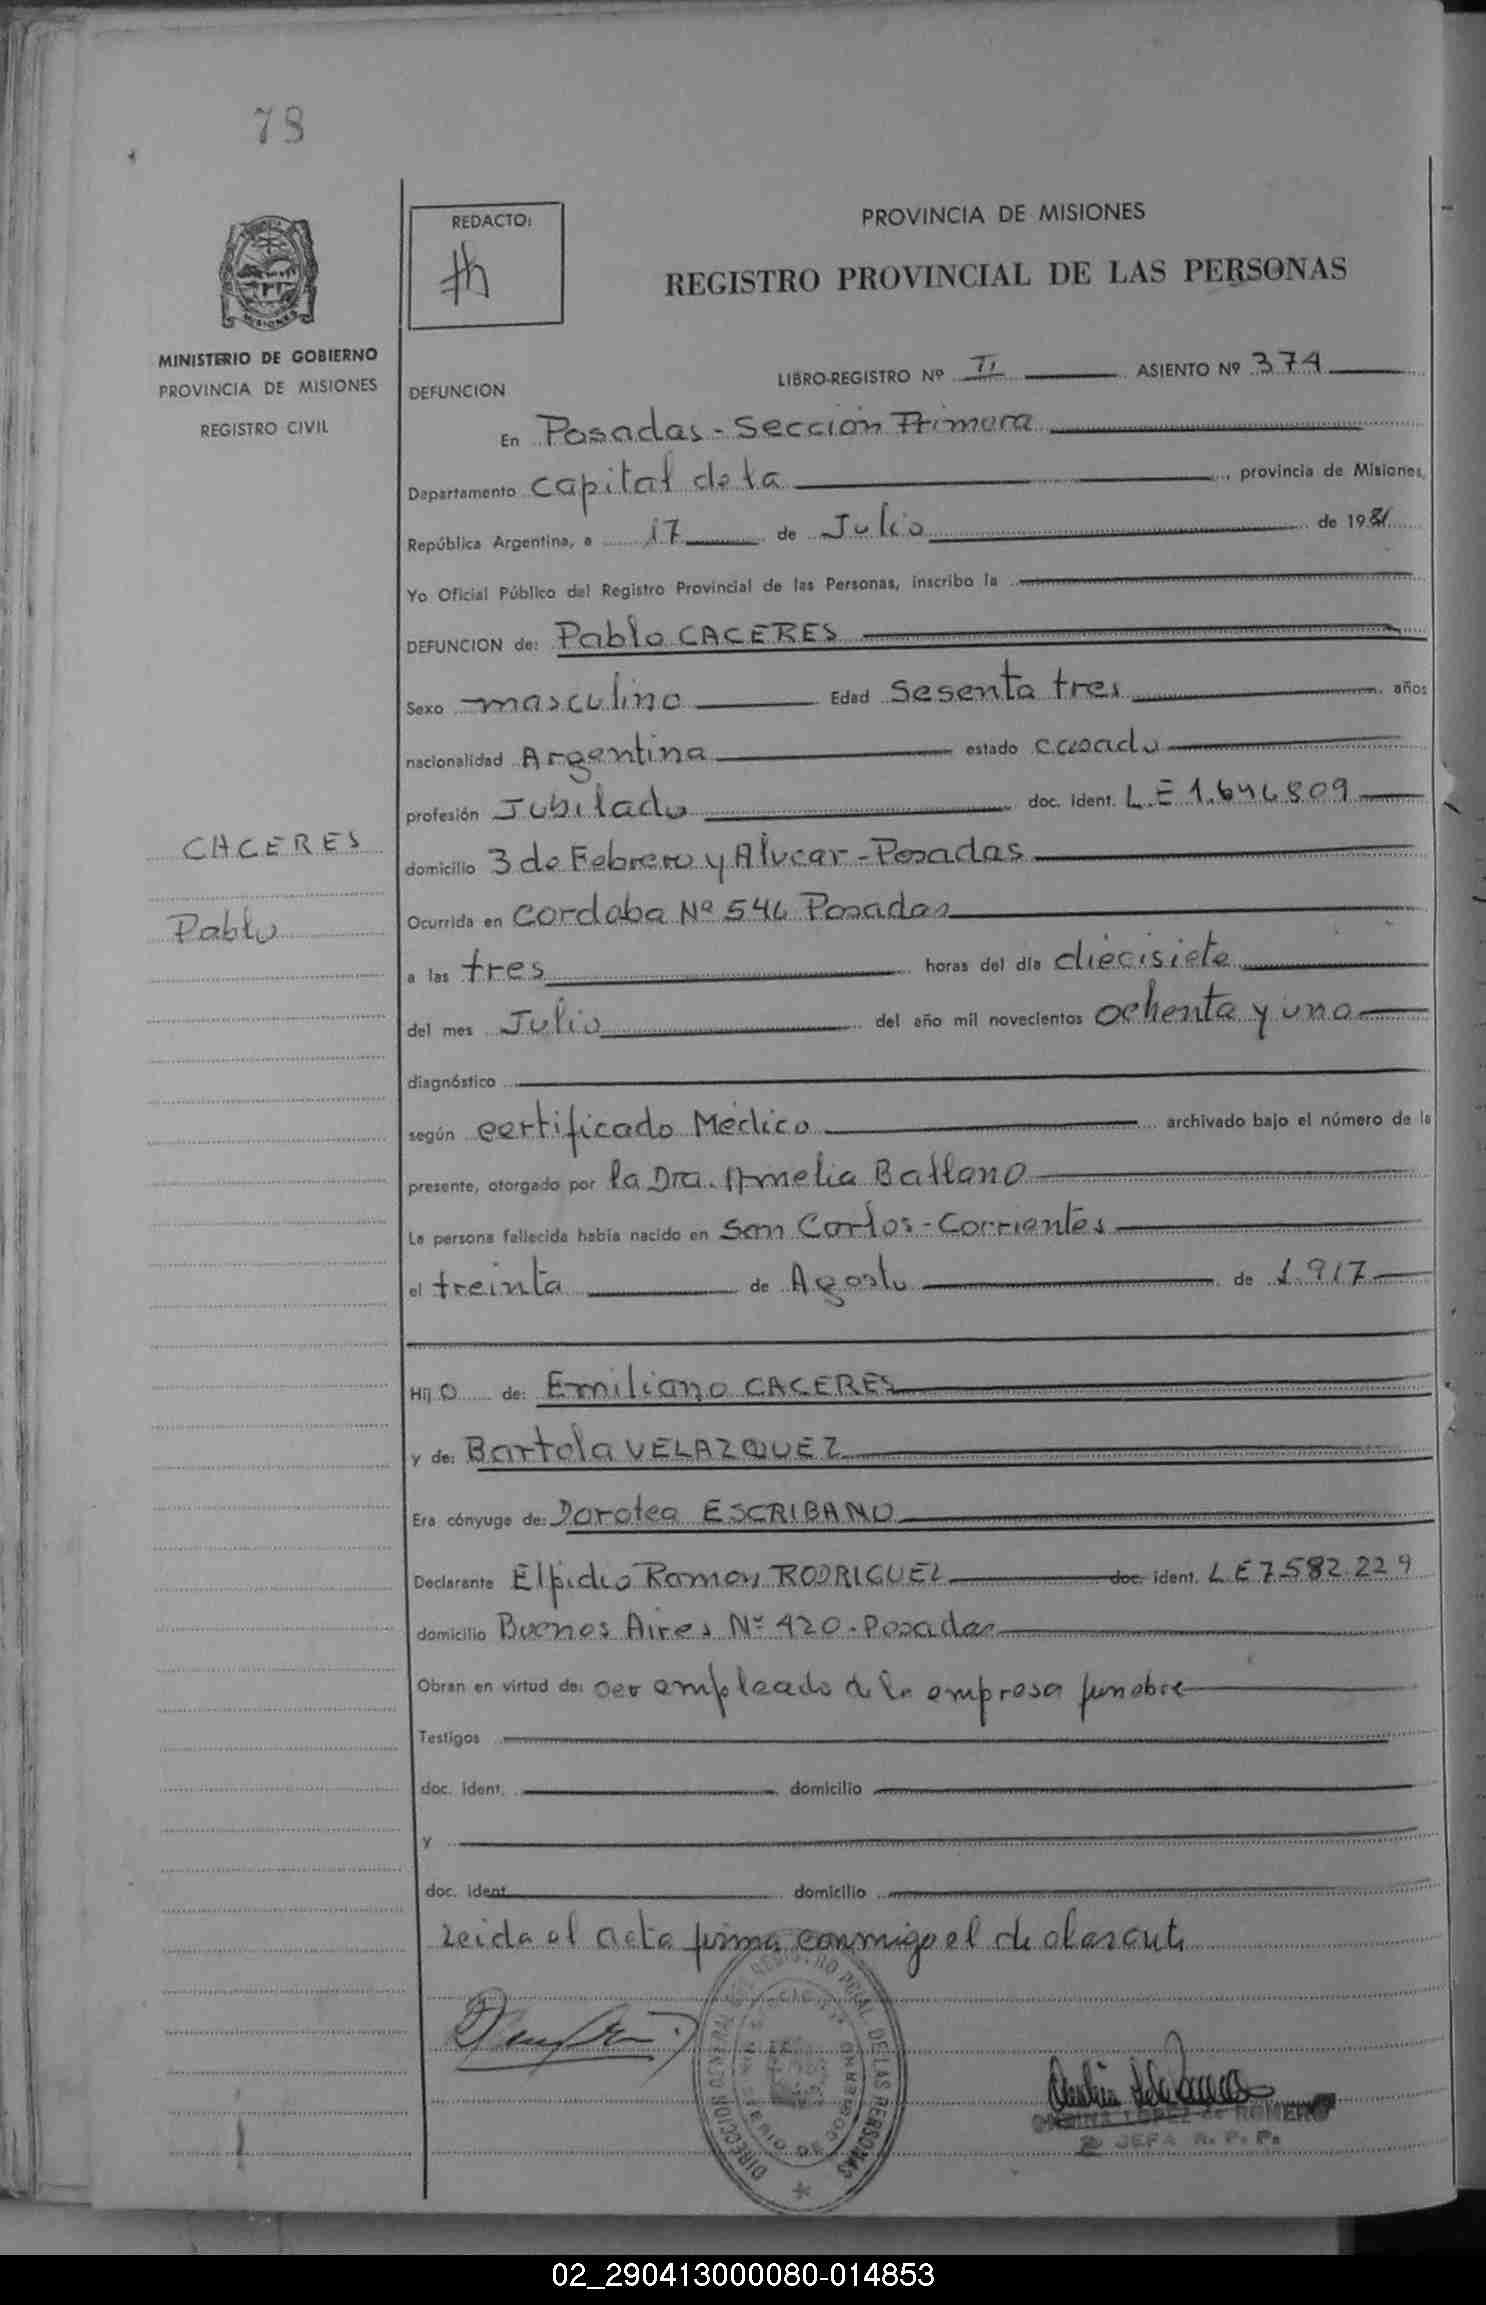 78
REDACTO:
PROVINCIA DE MISIONES
REGISTRO PROVINCIAL DE LAS PERSONAS
MINISTERIO DE GOBIERNO
PROVINCIA DE MISIONES
REGISTRO CIVIL
DEFUNCION
LIBRO-REGISTRO Nº II ASIENTO Nº 374
En Posadas - Sección Primera
Departamento Capital de la provincia de Misiones,
República Argentina, a 17 de Julio de 1981
Yo Oficial Público del Registro Provincial de las Personas, inscribo la
DEFUNCION de: Pablo CACERES
Sexo masculino Edad sesenta tres años
nacionalidad Argentina estado casado
profesión Jubilado doc. ident. L E 1.646.809
CACERES
domicilio 3 de Febrero y Alvear - Posadas
Pablo
Ocurrida en Cordoba Nº 546 Posadas
a las tres horas del día diecisiete
del mes Julio del año mil novecientos ochenta y uno
diagnóstico
según certificado Médico archivado bajo el número de la
presente, otorgado por la Dra. Amelia
La persona fallecida había nacido en San Carlos - Corrientes
el treinta de Agosto de 1917
Hij o de: Emiliano CACERES
y de: Bartola VELAZQUEZ
Era cónyuge de: Dorotea ESCRIBANO
Declarante Elpidio Ramon RODRIGUEZ doc. ident. L E 7.582.229
domicilio Buenos Aires Nº 420 - Posadas
Obran en virtud de: ser empleado de la empresa funebre
Testigos
doc. ident. domicilio
y
doc. ident. domicilio
Leida el acta firma conmigo el declarante
DIRECCION GENERAL DEL REGISTRO PCIAL. DE LAS PERSONAS
MINISTERIO DE GOBIERNO
LOPEZ de ROMERO
JEFA R. P. P.
02_290413000080-014853